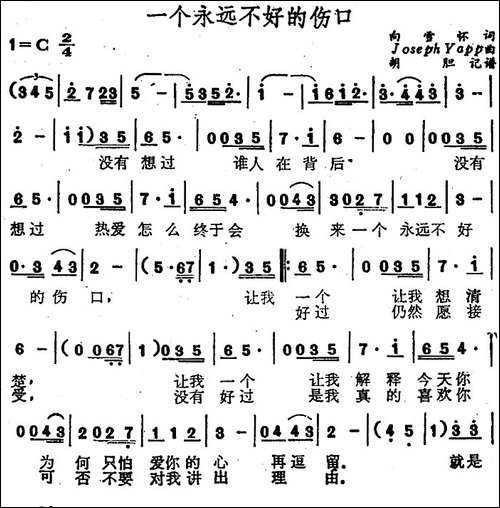 一个永远不好的伤口
1=C 2/4
向雪怀 词
Joseph Yapp曲
胡 胆记谱
(345 | 2·723 | 5 - | 5352· | 1 - | 1612· | 3·443 | 3 - |
2 - | 11)35 | 65· | 0035 | 7·1 | 6 - | 0 0 | 0035 |
没有 想过 谁人 在 背后 没有
65· | 0035 | 7·1 | 654· | 0043 | 3027 | 112 | 3 -
想过 热爱 怎么 终于会 换 来一个 永远不 好
0·343 | 2 - | (5·67 | 1·)35 |: 65· | 0035 | 7·1 |
的伤 口, 让我 一个 让我 想清
好过 仍然 愿接
6 - | (0067 | 1)035 | 65· | 0035 | 7·1 | 654· |
楚, 让我 一个 让我 解释 今天你
受, 没有 好过 是我 真的 喜欢你
0043 | 2027 | 112 | 3 - | 0443 | 2 - | (45 | 1)33 |
为何 只怕 爱你的 心 再逗 留. 就是
可否 不要 对我讲 出 理 由.